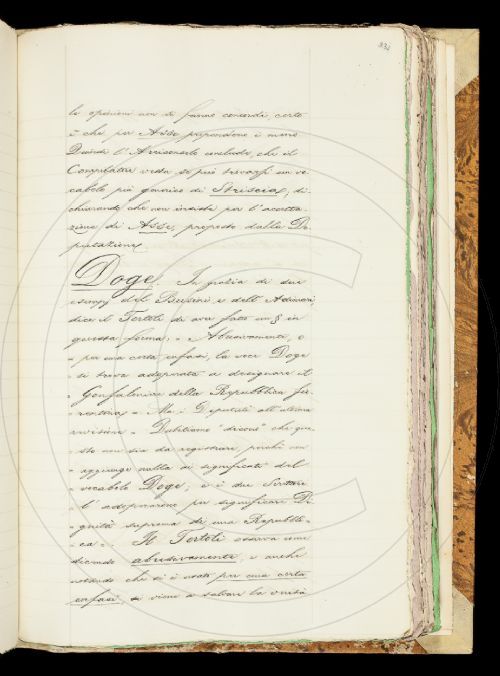 334
le opinioni non si fanno concordi, certo
è che per Asse propendono i meno
Quindi l'Arciconsolo conclude, che il
Compilatore veda se può trovarsi un vo-
cabolo più generico di Striscia, di-
chiarando che non insiste per l'accetta-
zione di Asse, proposto dalla De-
putazione.
Doge. In grazia di due
esempj del Busini e dell'Adimari,
dice il Tortoli di aver fatto un § in
questa forma: = Abusivamente, o
= per una certa enfasi, la voce Doge
= si trova adoperata a designare il
= Gonfaloniere della Repubblica fio-
= rentina = Ma i Deputati all'ultima
revisione = Dubitiamo "dicono" che que-
= sto non sia da registrare, perchè non
= aggiunge nulla ai significati del
= vocabolo Doge; e i due Scrittori
= l'adoperarono per significare Di-
= gnità suprema di una Repubbli-
= ca = Il Tortoli osserva come
dicendo abusivamente, e anche
notando che si è usato per una certa
enfasi, si viene a salvare la verità